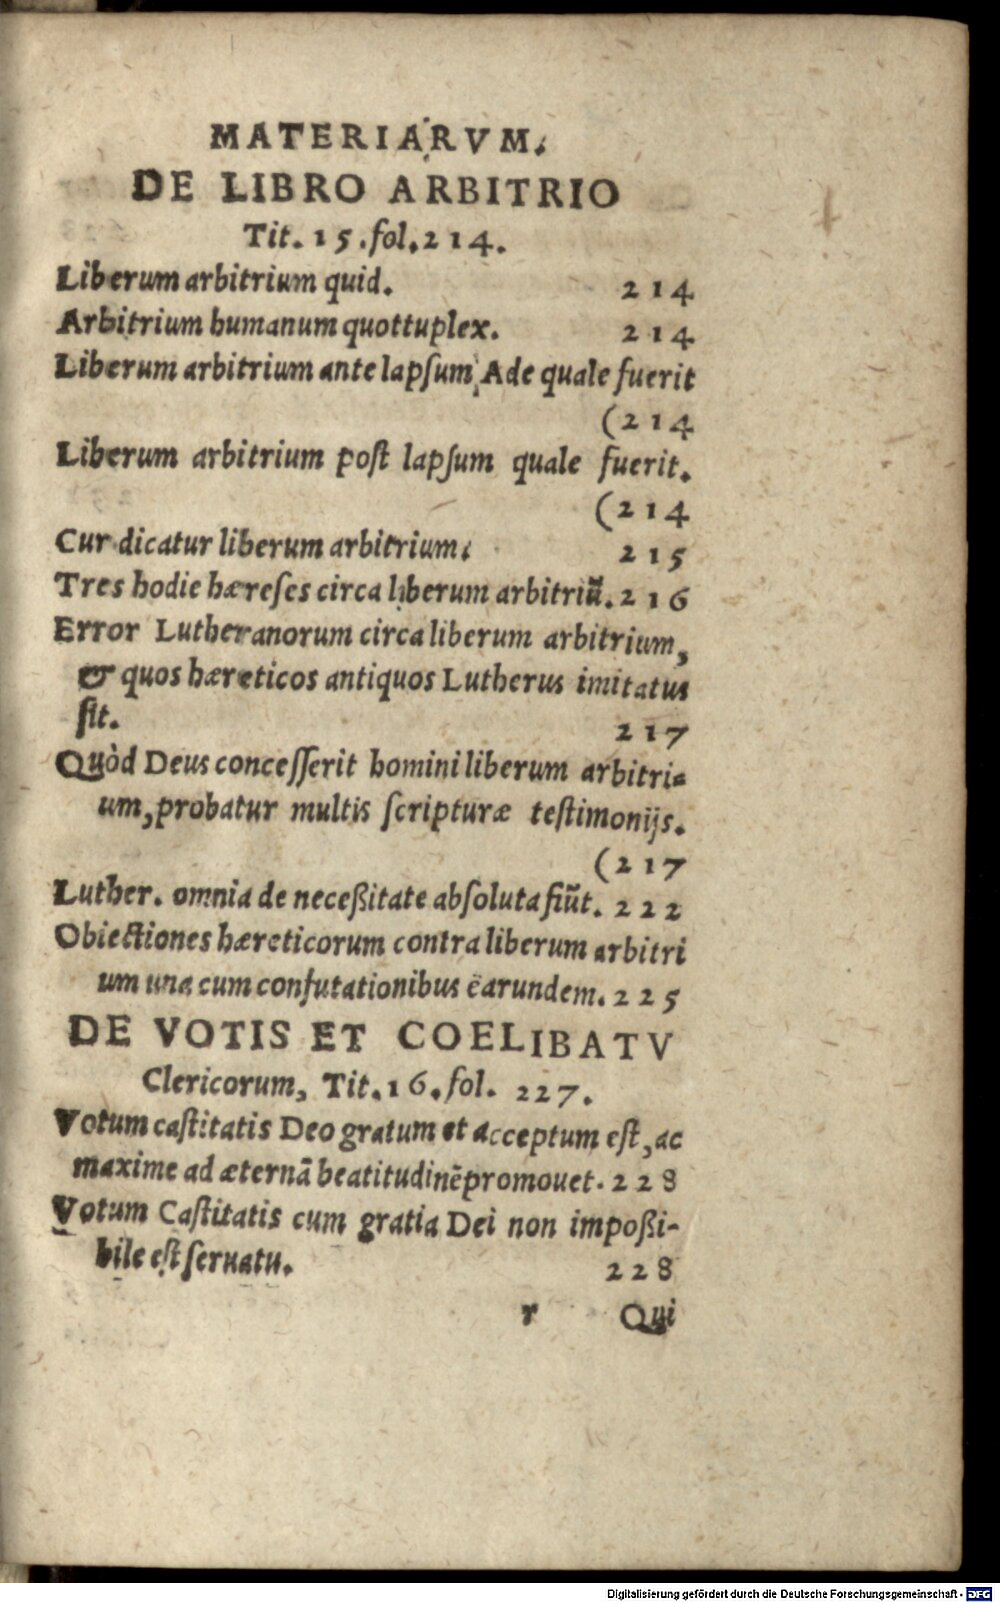 MATERIARVM.
DE LIBRO ARBITRIO
Tit. 15. fol. 214.
Liberum arbitrium quid. 214
Arbitrium humanum quottuplex. 214
Liberum arbitrium ante lapſum Ade quale fuerit
(214
Liberum arbitrium poſt lapſum quale fuerit.
(214
Cur dicatur liberum arbitrium. 215
Tres hodie hæreſes circa liberum arbitriū. 216
Error Lutheranorum circa liberum arbitrium,
& quos hæreticos antiquos Lutherus imitatus
ſit. 217
Quòd Deus conceſſerit homini liberum arbitri-
um, probatur multis ſcripturæ teſtimonijs.
(217
Luther. omnia de neceßitate abſoluta fiūt. 222
Obiectiones hæreticorum contra liberum arbitri
um una cum confutationibus earundem. 225
DE VOTIS ET COELIBATV
Clericorum, Tit. 16. fol. 227.
Votum caſtitatis Deo gratum et acceptum eſt, ac
maxime ad æternā beatitudinē promouet. 228
Votum Caſtitatis cum gratia Dei non impoßi-
bile eſt ſeruatu. 228
r Qui
Digitalisierung gefördert durch die Deutsche Forschungsgemeinschaft - DFG